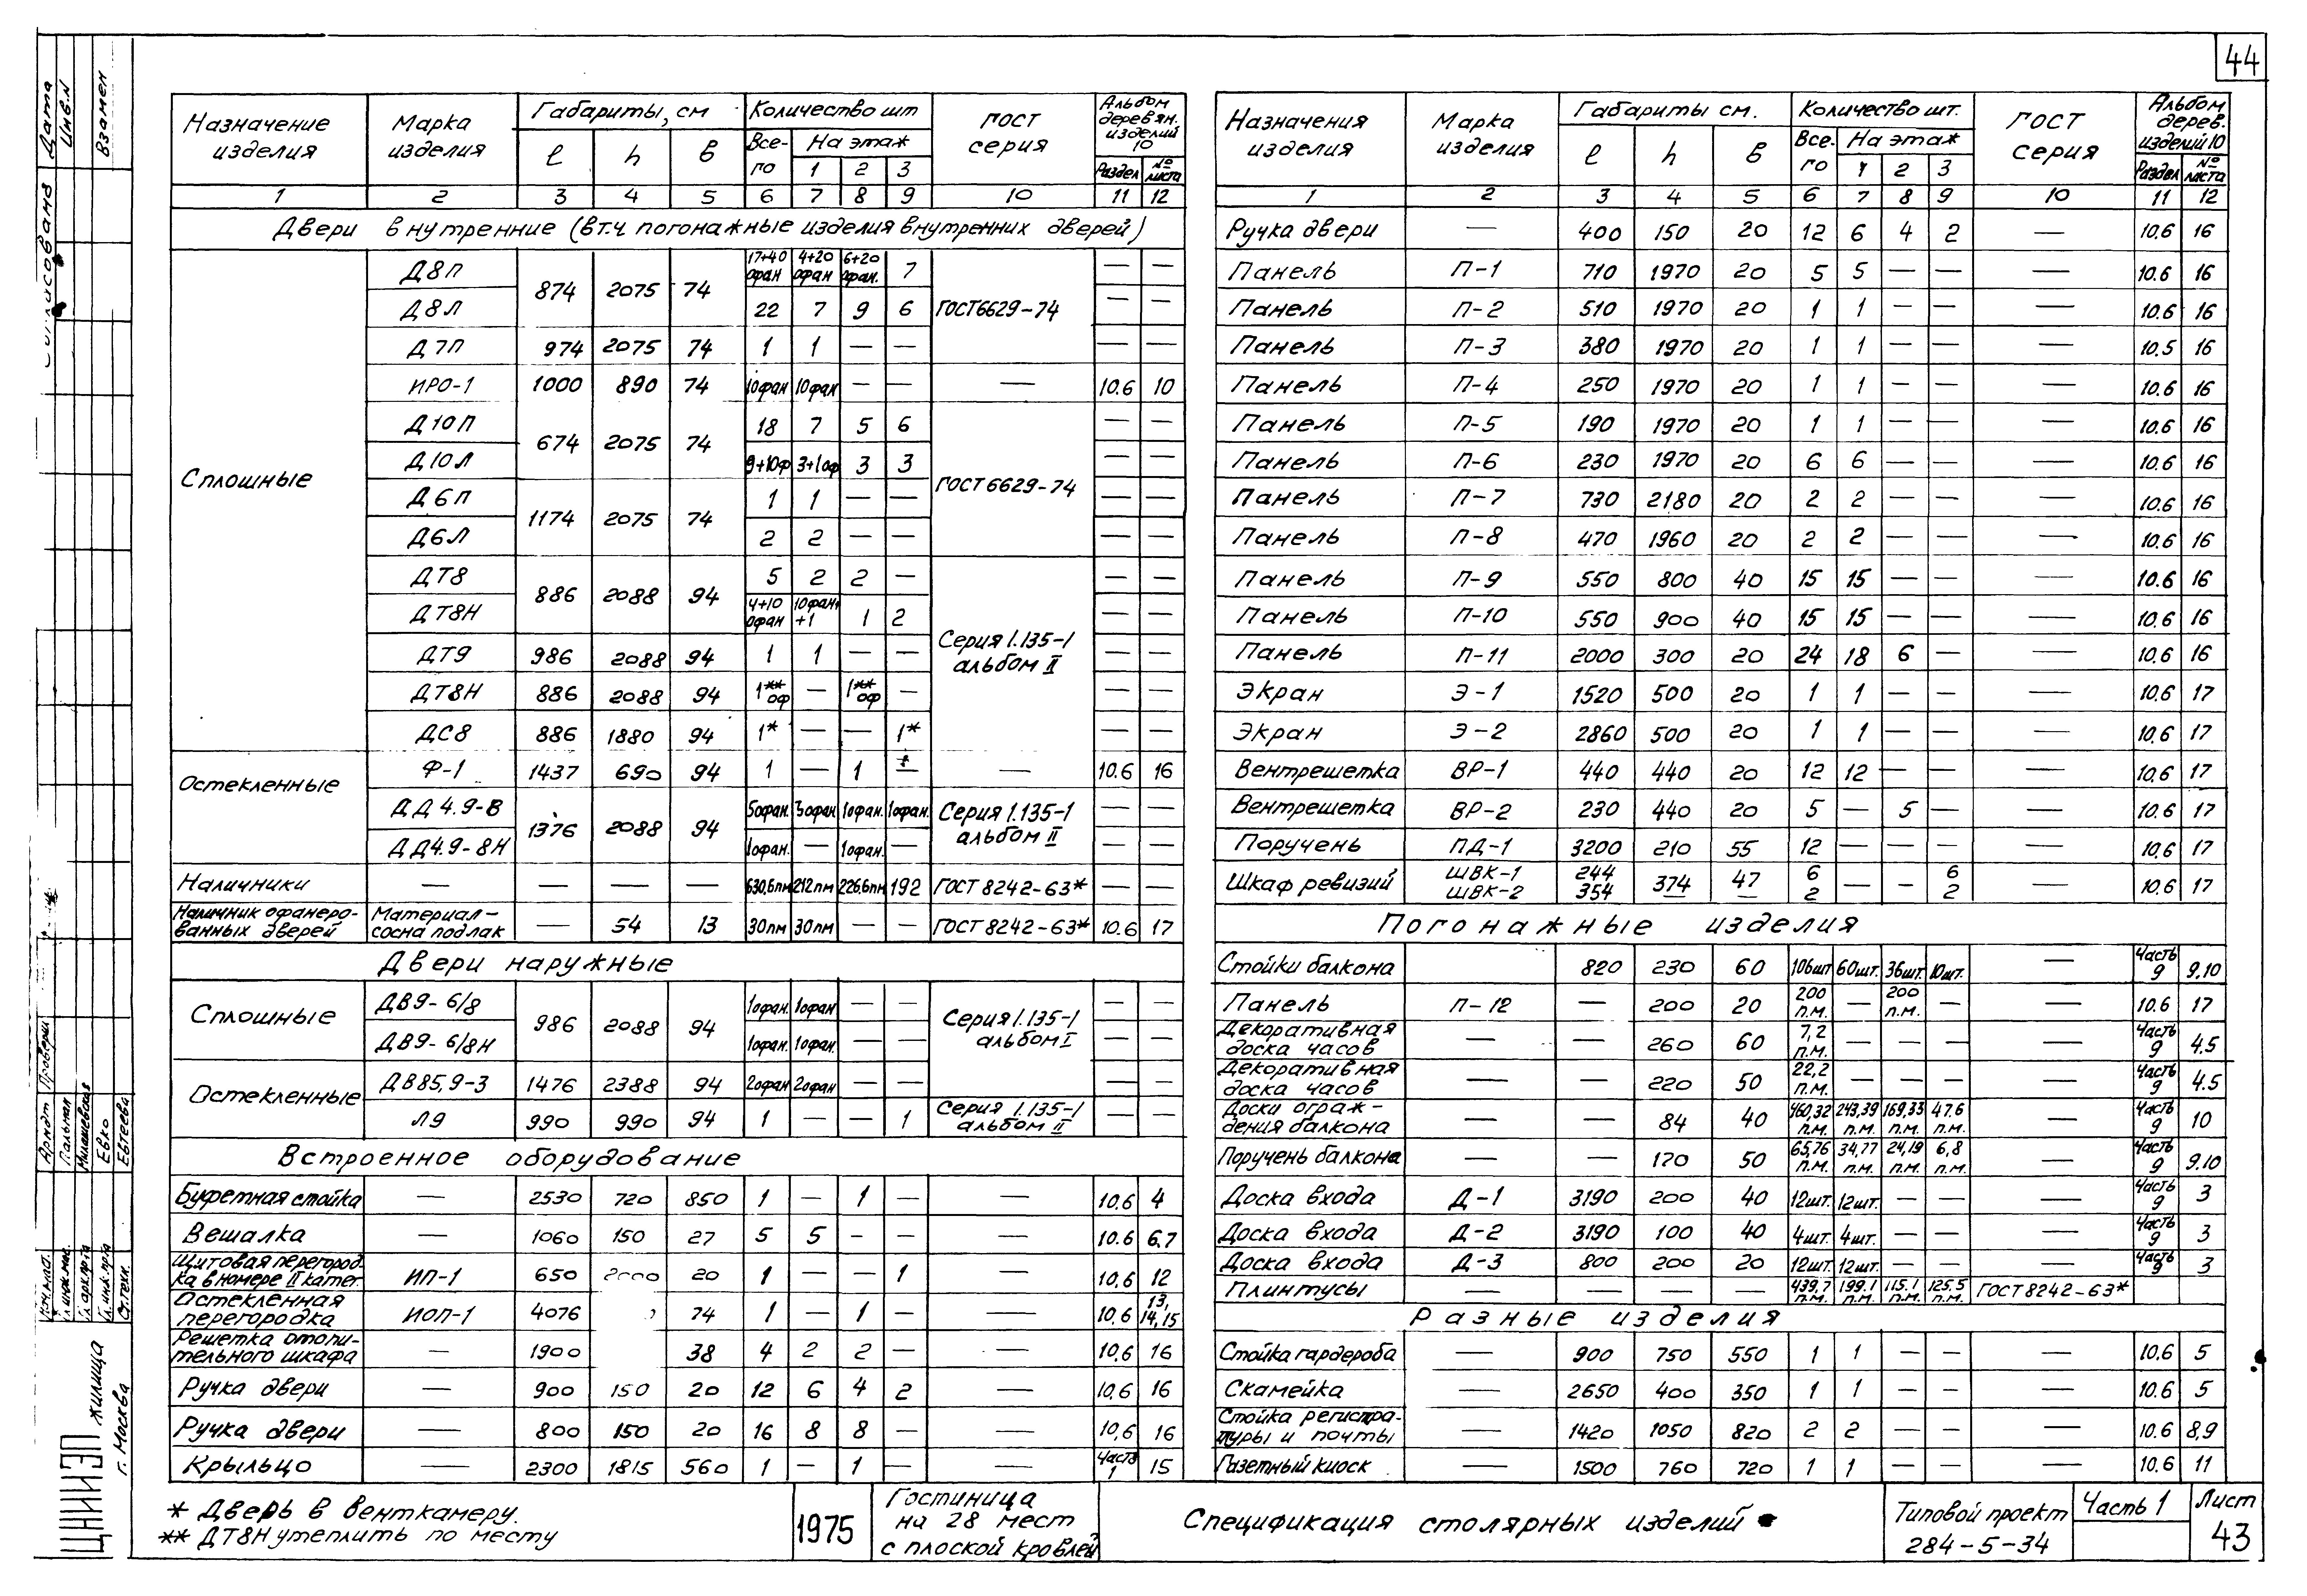 44
Назначение изделия | Марка изделия | Габариты, см | Количество шт | ГОСТ серия | Альбом деревян. изделий 10
ℓ | h | б | Все-го | На этаж 1 | 2 | 3 | Раздел | № листа
1 | 2 | 3 | 4 | 5 | 6 | 7 | 8 | 9 | 10 | 11 | 12
Двери внутренние (вт.ч погонажные изделия внутренних дверей)
Сплошные
Д8П | 874 | 2075 | 74 | 17+40 офан | 4+20 офан | 6+20 офан. | 7 | ГОСТ 6629-74 | — | —
Д8Л | 22 | 7 | 9 | 6 | — | —
Д7П | 974 | 2075 | 74 | 1 | 1 | — | — | — | —
ИРО-1 | 1000 | 890 | 74 | 10фан | 10фан | — | — | — | 10.6 | 10
Д10П | 674 | 2075 | 74 | 18 | 7 | 5 | 6 | ГОСТ 6629-74 | — | —
Д10Л | 9+10ф | 3+10ф | 3 | 3 | — | —
Д6П | 1174 | 2075 | 74 | 1 | 1 | — | — | — | —
Д6Л | 2 | 2 | — | — | — | —
ДТ8 | 886 | 2088 | 94 | 5 | 2 | 2 | — | Серия 1.135-1 альбом II | — | —
ДТ8Н | 4+10 офан | 10фан+ +1 | 1 | 2 | — | —
ДТ9 | 986 | 2088 | 94 | 1 | 1 | — | — | — | —
ДТ8Н | 886 | 2088 | 94 | 1** оф | — | 1** оф | — | — | —
ДС8 | 886 | 1880 | 94 | 1* | — | — | 1* | — | —
Остекленные
Ф-1 | 1437 | 690 | 94 | 1 | — | 1 | — | — | 10.6 | 16
ДД4.9-В | 1376 | 2088 | 94 | 5офан. | 3офан | 1офан. | 1офан. | Серия 1.135-1 альбом II | — | —
ДД4.9-8Н | 1офан. | — | 1офан. | — | — | —
Наличники | — | — | — | — | 630,6пм | 212пм | 226,6пм | 192 | ГОСТ 8242-63* | — | —
Наличник офанеро-ванных дверей | Материал-сосна под лак | — | 54 | 13 | 30пм | 30пм | — | — | ГОСТ 8242-63* | 10.6 | 17
Двери наружные
Сплошные
ДВ9-6/8 | 986 | 2088 | 94 | 1офан. | 1офан | — | — | Серия 1.135-1 альбом I | — | —
ДВ9-6/8Н | 1офан. | 1офан. | — | — | — | —
Остекленные
ДВ85,9-3 | 1476 | 2388 | 94 | 2офан | 2офан | — | — | — | —
Л9 | 990 | 990 | 94 | 1 | — | — | 1 | Серия 1.135-1 альбом II | — | —
Встроенное оборудование
Буфетная стойка | — | 2530 | 720 | 850 | 1 | — | 1 | — | — | 10.6 | 4
Вешалка | — | 1060 | 150 | 27 | 5 | 5 | — | — | — | 10.6 | 6,7
Щитовая перегород-ка в номере II катег. | ИП-1 | 650 | 2000 | 20 | 1 | — | — | 1 | — | 10.6 | 12
Остекленная перегородка | ИОП-1 | 4076 | 74 | 1 | — | 1 | — | — | 10.6 | 13, 14,15
Решетка отопи-тельного шкафа | — | 1900 | 38 | 4 | 2 | 2 | — | — | 10,6 | 16
Ручка двери | — | 900 | 150 | 20 | 12 | 6 | 4 | 2 | — | 10.6 | 16
Ручка двери | — | 800 | 150 | 20 | 16 | 8 | 8 | — | — | 10,6 | 16
Крыльцо | — | 2300 | 1815 | 560 | 1 | — | 1 | — | — | Часть 1 | 15
Назначения изделия | Марка изделия | Габариты см. | Количество шт. | ГОСТ серия | Альбом дерев. изделий 10
ℓ | h | б | Все-го | На этаж 1 | 2 | 3 | Раздел | № листа
1 | 2 | 3 | 4 | 5 | 6 | 7 | 8 | 9 | 10 | 11 | 12
Ручка двери | — | 400 | 150 | 20 | 12 | 6 | 4 | 2 | — | 10.6 | 16
Панель | П-1 | 710 | 1970 | 20 | 5 | 5 | — | — | — | 10.6 | 16
Панель | П-2 | 510 | 1970 | 20 | 1 | 1 | — | — | — | 10.6 | 16
Панель | П-3 | 380 | 1970 | 20 | 1 | 1 | — | — | — | 10.5 | 16
Панель | П-4 | 250 | 1970 | 20 | 1 | 1 | — | — | — | 10.6 | 16
Панель | П-5 | 190 | 1970 | 20 | 1 | 1 | — | — | — | 10.6 | 16
Панель | П-6 | 230 | 1970 | 20 | 6 | 6 | — | — | — | 10.6 | 16
Панель | П-7 | 730 | 2180 | 20 | 2 | 2 | — | — | — | 10.6 | 16
Панель | П-8 | 470 | 1960 | 20 | 2 | 2 | — | — | — | 10.6 | 16
Панель | П-9 | 550 | 800 | 40 | 15 | 15 | — | — | — | 10.6 | 16
Панель | П-10 | 550 | 900 | 40 | 15 | 15 | — | — | — | 10.6 | 16
Панель | П-11 | 2000 | 300 | 20 | 24 | 18 | 6 | — | — | 10.6 | 16
Экран | Э-1 | 1520 | 500 | 20 | 1 | 1 | — | — | — | 10.6 | 17
Экран | Э-2 | 2860 | 500 | 20 | 1 | 1 | — | — | — | 10.6 | 17
Вентрешетка | ВР-1 | 440 | 440 | 20 | 12 | 12 | — | — | — | 10.6 | 17
Вентрешетка | ВР-2 | 230 | 440 | 20 | 5 | — | 5 | — | — | 10.6 | 17
Поручень | ПД-1 | 3200 | 210 | 55 | 12 | — | — | — | — | 10.6 | 17
Шкаф ревизий | ШВК-1 ШВК-2 | 244 354 | 374 | 47 | 6 2 | — | — | 6 2 | — | 10,6 | 17
Погонажные изделия
Стойки балкона | 820 | 230 | 60 | 106шт | 60шт. | 36шт. | 10шт. | — | Часть 9 | 9.10
Панель | П-12 | — | 200 | 20 | 200 п.м. | — | 200 п.м. | — | — | 10.6 | 17
Декоративная доска часов | — | — | 260 | 60 | 7,2 п.м. | — | — | — | — | Часть 9 | 4.5
Декоративная доска часов | — | — | 220 | 50 | 22,2 п.м. | — | — | — | — | Часть 9 | 4.5
Доски ограж-дения балкона | — | — | 84 | 40 | 460,32 п.м. | 243,39 п.м. | 169,33 п.м. | 47.6 п.м. | — | Часть 9 | 10
Поручень балкона | — | — | 120 | 50 | 65,76 п.м. | 34,77 п.м. | 24,19 п.м. | 6,8 п.м. | — | Часть 9 | 9.10
Доска входа | Д-1 | 3190 | 200 | 40 | 12шт. | 12шт. | — | — | — | Часть 9 | 3
Доска входа | Д-2 | 3190 | 100 | 40 | 4шт. | 4шт. | — | — | — | Часть 9 | 3
Доска входа | Д-3 | 800 | 200 | 20 | 12шт. | 12шт. | — | — | — | Часть 9 | 3
Плинтусы | — | — | — | — | 439,7 п.м. | 199.1 п.м. | 115.1 п.м. | 125.5 п.м. | ГОСТ 8242-63*
Разные изделия
Стойка гардероба | — | 900 | 750 | 550 | 1 | 1 | — | — | — | 10.6 | 5
Скамейка | — | 2650 | 400 | 350 | 1 | 1 | — | — | — | 10.6 | 5
Стойка регистра-туры и почты | — | 1420 | 1050 | 820 | 2 | 2 | — | — | — | 10.6 | 8,9
Газетный киоск | — | 1500 | 760 | 720 | 1 | 1 | — | — | — | 10.6 | 11
* Дверь в венткамеру.
** ДТ8Н утеплить по месту
1975
Гостиница
на 28 мест
с плоской кровлей
Спецификация столярных изделий
Типовой проект
284-5-34
Часть 1
Лист
43
Дата
Инв.N
Взамен
Арндт
Пальман
Милашевская
Евко
Евтеева
ЦНИИЭП жилища
г. Москва